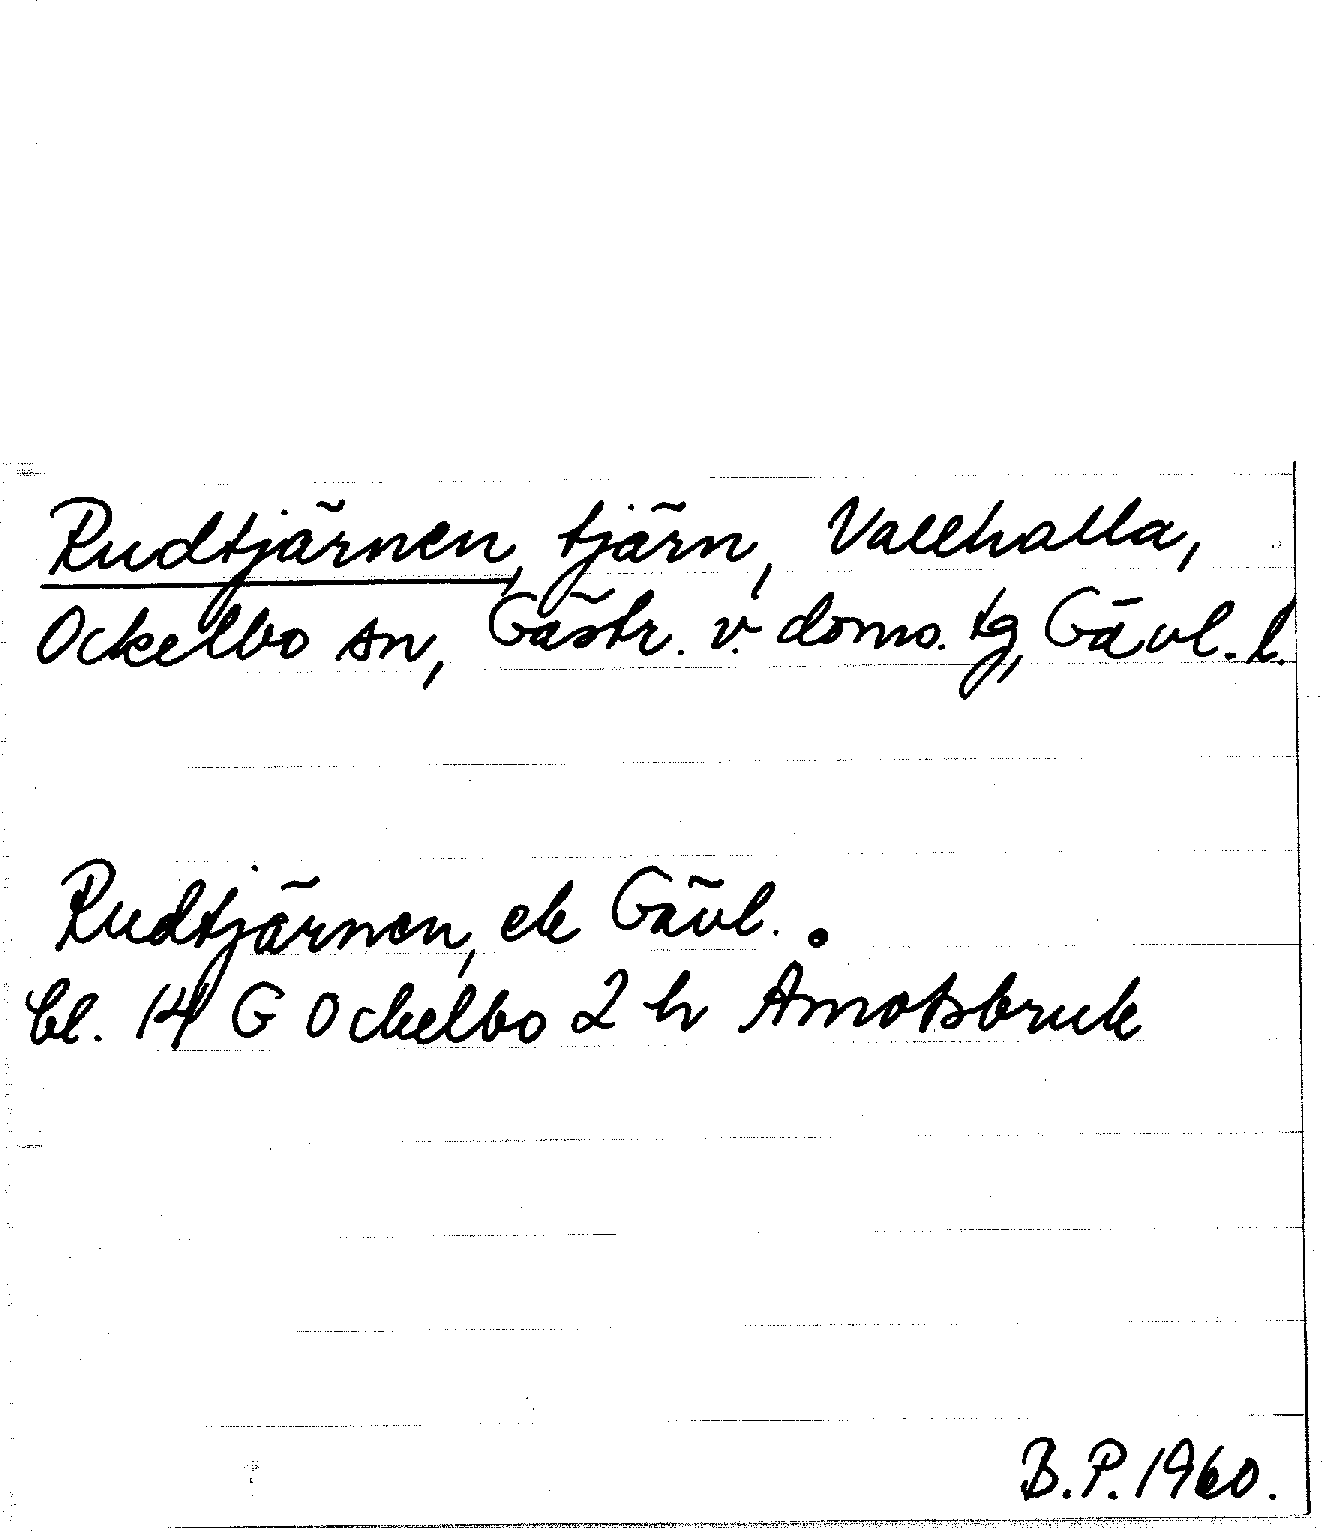 Rudtjärnen, tjärn, Vallhalla,
Ockelbo sn, Gästr. v. doms. tg, Gävl. l.
Rudtjärnen, ek Gävl.
bl. 14 G Ockelbo 2 h Åmotsbruk
B.P. 1960.